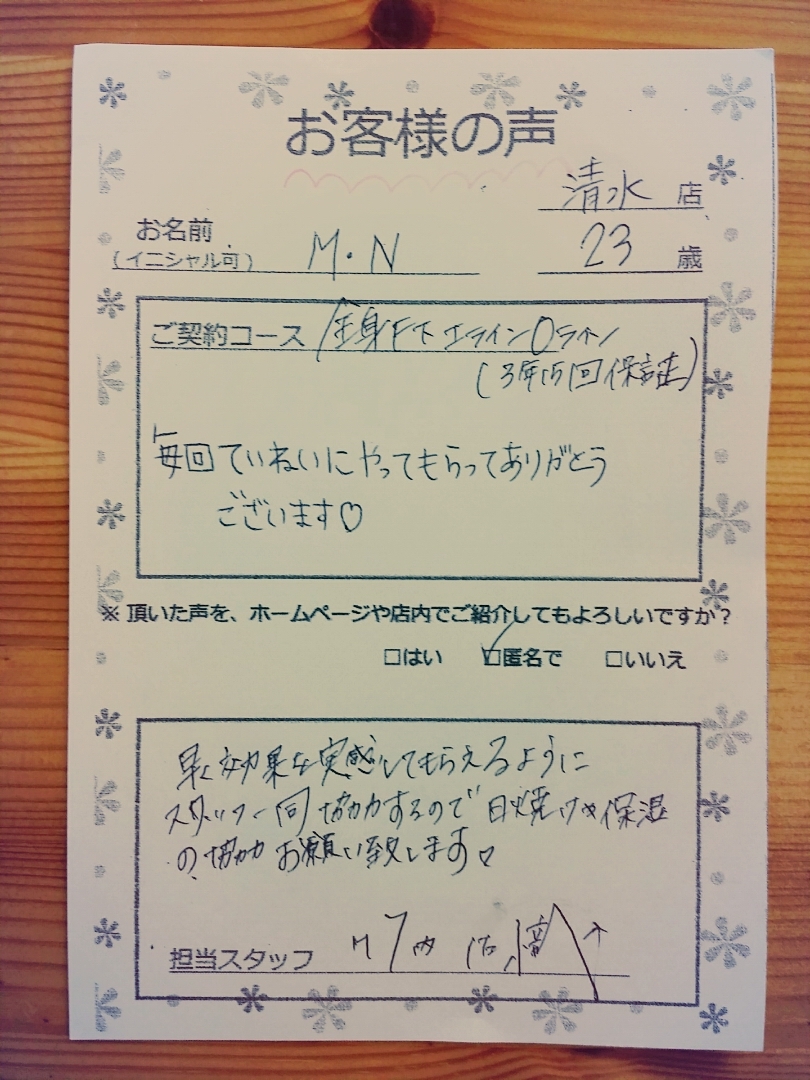 お客様の声
清水 店
お名前
(イニシャル可) M・N 23 歳
ご契約コース 全身ド下Iライン Oライン
(3年15回保証)
毎回ていねいにやってもらってありがとう
ございます♡
※ 頂いた声を、ホームページや店内でご紹介してもよろしいですか？
□はい ☑匿名で □いいえ
早く効果を実感してもらえるように
スタッフ一同協力するので日焼けや保湿
の協力お願い致します♡
担当スタッフ